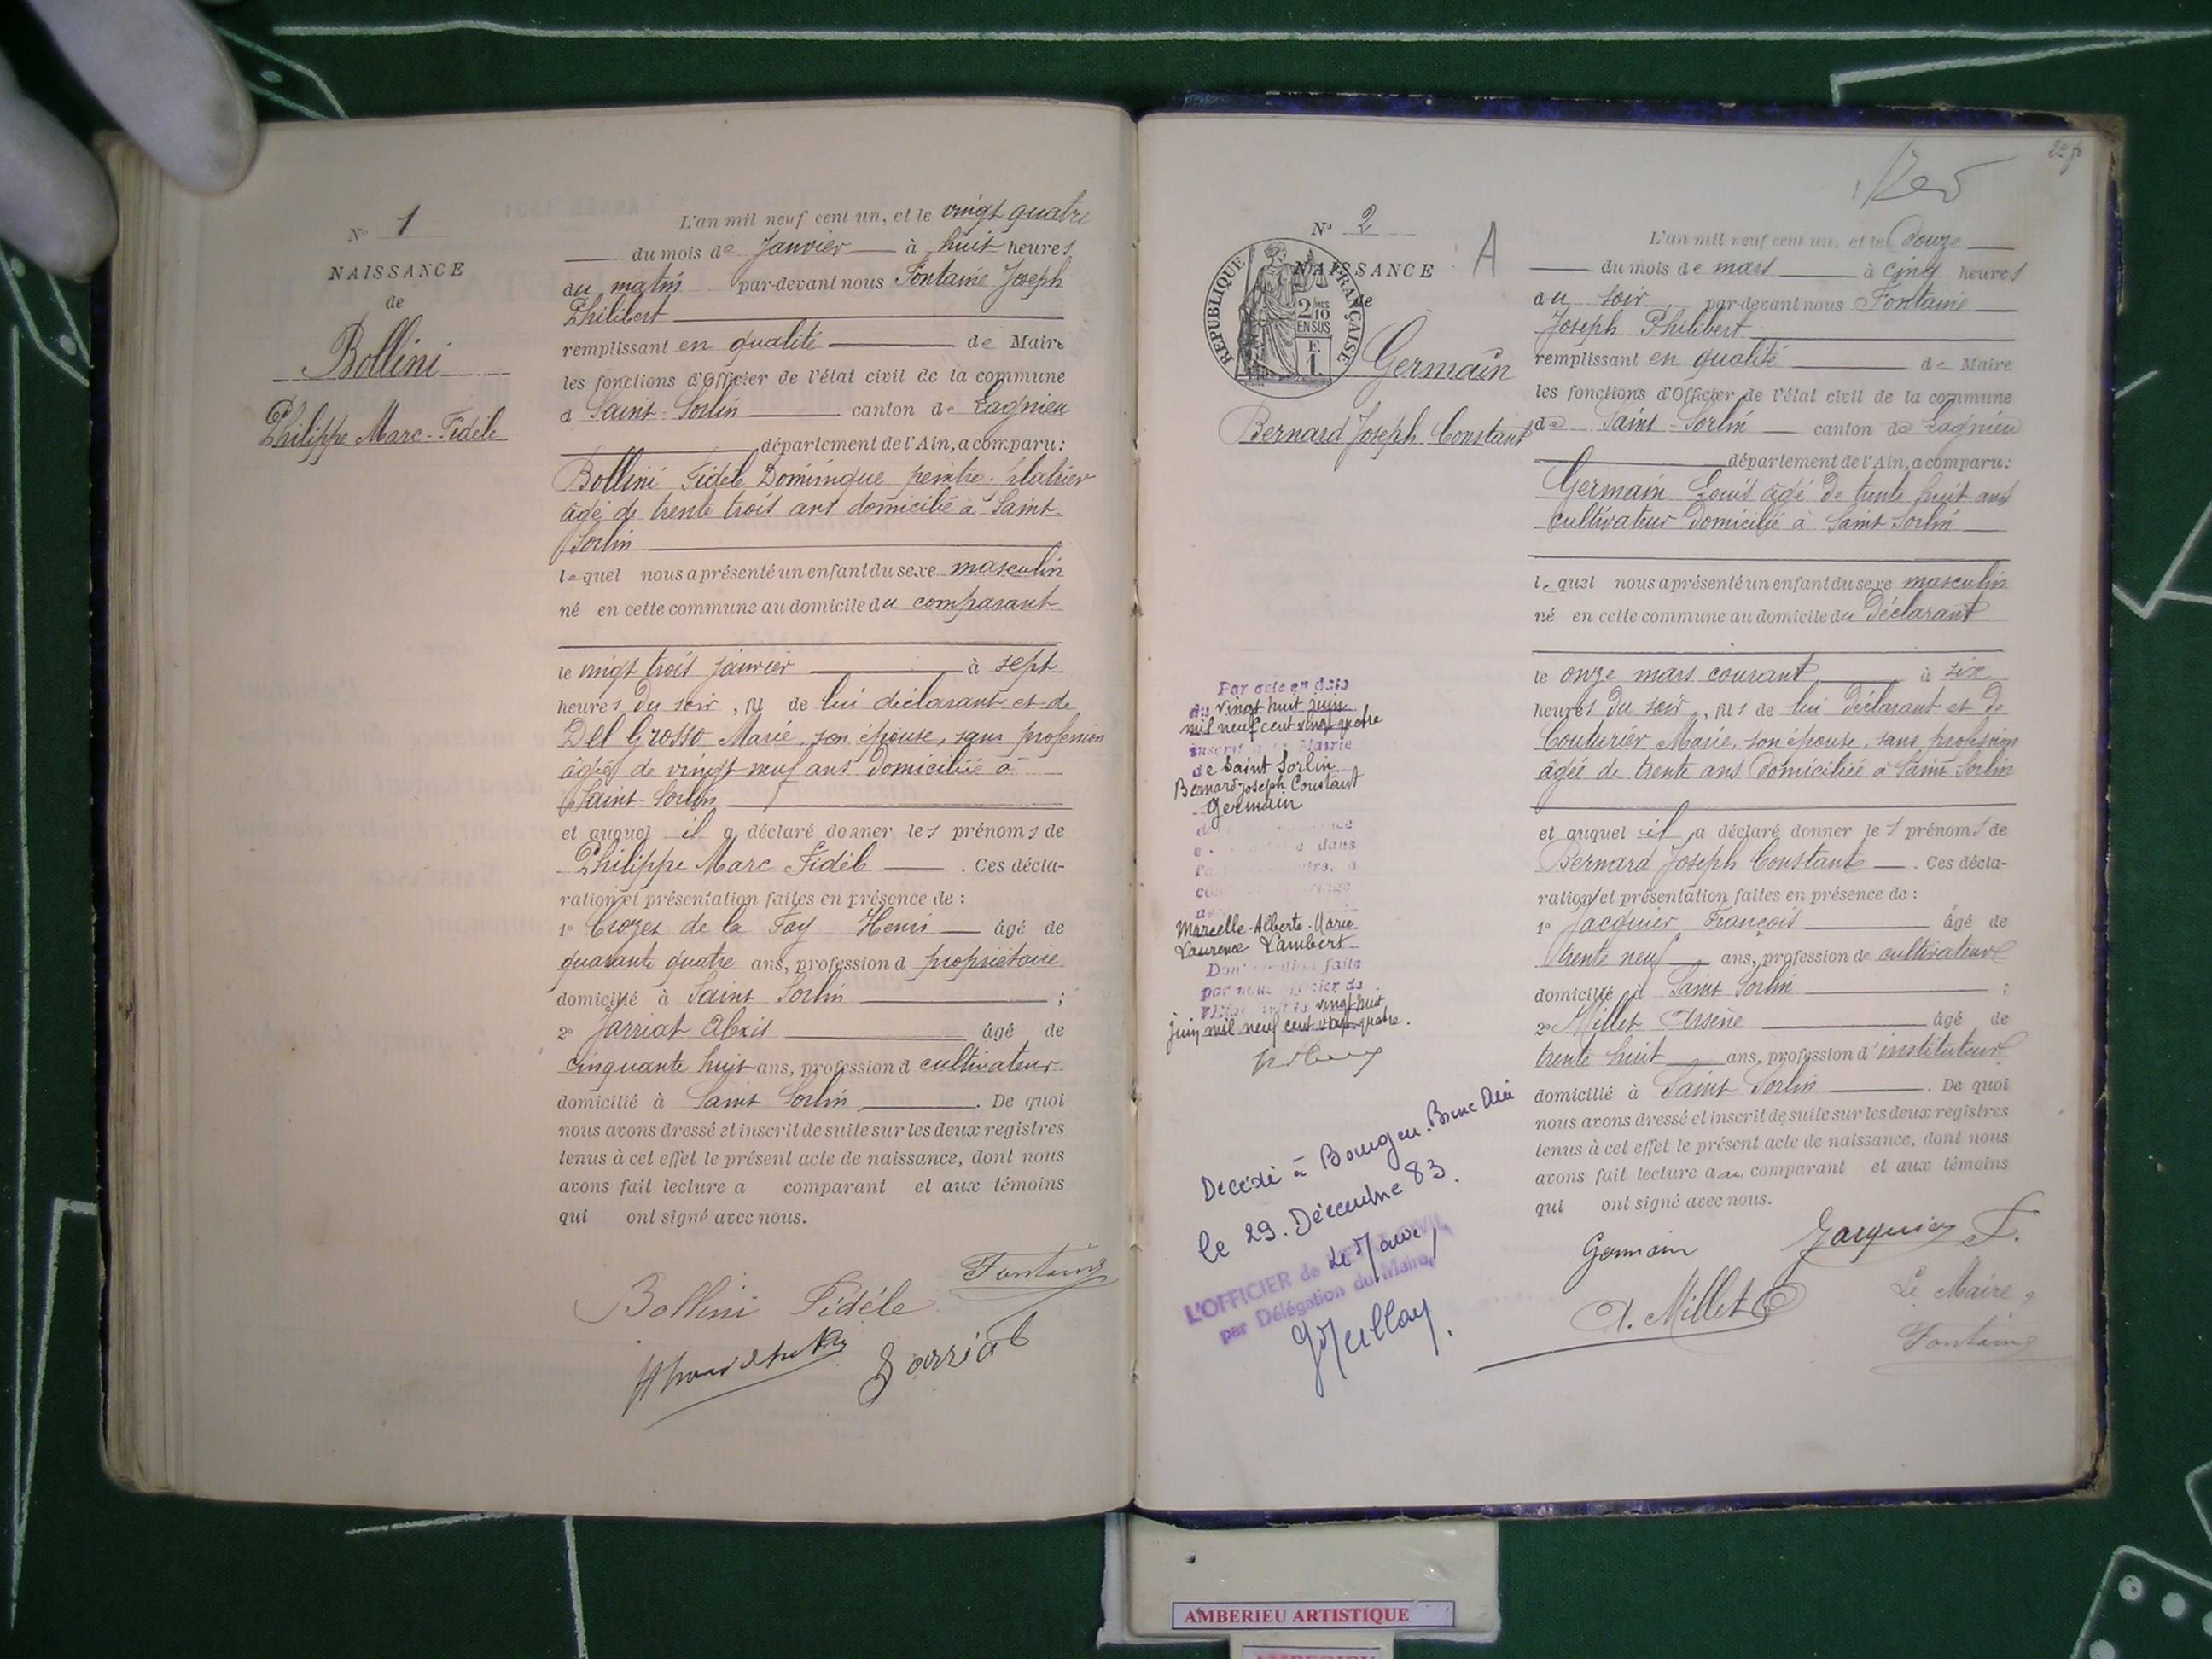 N° 1
NAISSANCE
de
Bollini
Philippe Marc-Fidèle
L'an mil neuf cent un, et le vingt quatre
du mois de Janvier à huit heures
du matin par-devant nous Fontaine Joseph
Philibert
remplissant en qualité de Maire
les fonctions d'Officier de l'état civil de la commune
d Saint-Sorlin canton de Lagnieu
département de l'Ain, a comparu:
Bollini Fidèle Dominique peintre-plâtrier
âgé de trente trois ans domicilié à Saint-
Sorlin
lequel nous a présenté un enfant du sexe masculin
né en cette commune au domicile du comparant
le vingt trois janvier à sept
heures du soir, fils de lui déclarant et de
Del Grosso Marie, son épouse, sans profession
âgée de vingt neuf ans domiciliée à
Saint-Sorlin
et auquel il a déclaré donner les prénoms de
Philippe Marc Fidèle. Ces décla-
ration et présentation faites en présence de :
1° Crozes de la Fay Henri âgé de
quarante quatre ans, profession d propriétaire
domicilié à Saint Sorlin ;
2° Jarriat Alexis âgé de
cinquante huit ans, profession d cultivateur
domicilié à Saint Sorlin. De quoi
nous avons dressé et inscrit de suite sur les deux registres
tenus à cet effet le présent acte de naissance, dont nous
avons fait lecture a comparant et aux témoins
qui ont signé avec nous.
Fontaine
Bollini Fidèle
Jarriat
N° 2
NAISSANCE A
de
REPUBLIQUE FRANÇAISE
2/10
EN SUS
F.
1
Germain
Bernard Joseph Constant
Par acte en date
du vingt huit juin
mil neuf cent vingt quatre
inscrit à la Mairie
de Saint Sorlin
Bernard Joseph Constant
Germain
dans
Marcelle-Alberte-Marie
Laurence Lambert
Dont mention faite
par nous officier de
l'Etat civil le vingt huit
juin mil neuf cent vingt quatre.
Décédé à Bourg en Bresse Ain
le 29. Décembre 83.
Le Maire,
L'OFFICIER de L'ETAT CIVIL
par Délégation du Maire,
L'an mil neuf cent un, et le Douze
du mois de mars à cinq heures
du soir par-devant nous Fontaine
Joseph Philibert
remplissant en qualité de Maire
les fonctions d'Officier de l'état civil de la commune
de Saint-Sorlin canton de Lagnieu
département de l'Ain, a comparu:
Germain Louis âgé de trente huit ans
cultivateur domicilié à Saint Sorlin
lequel nous a présenté un enfant du sexe masculin
né en cette commune au domicile du déclarant
le onze mars courant à six
heures du soir, fils de lui déclarant et de
Couturier Marie, son épouse, sans profession
âgée de trente ans domiciliée à Saint Sorlin
et auquel il a déclaré donner les prénoms de
Bernard Joseph Constant. Ces décla-
ration et présentation faites en présence de :
1° Jacquier François âgé de
trente neuf ans, profession de cultivateur
domicilié à Saint Sorlin ;
2° Millet Arsène âgé de
trente huit ans, profession d'instituteur
domicilié à Saint Sorlin. De quoi
nous avons dressé et inscrit de suite sur les deux registres
tenus à cet effet le présent acte de naissance, dont nous
avons fait lecture au comparant et aux témoins
qui ont signé avec nous.
Germain Jacquier F.
A. Millet Le Maire,
Fontaine
AMBERIEU ARTISTIQUE
AMBERIEU